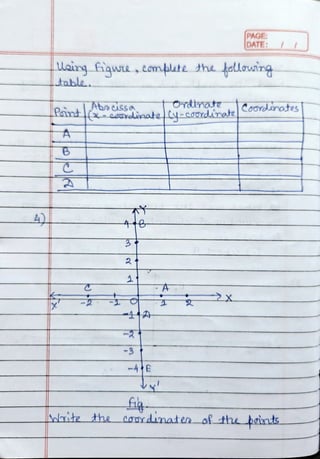 PAGE:
DATE: / /
Using Figure, complete the following
table.
Point Abscissa (x-coordinate Ordinate (y-coordinate Coordinates
A
B
C
D
4)
Y
4 B
3
2
1
C A
X' -2 -1 O 1 2 X
-1 D
-2
-3
-4 E
Y'
Fig
Write the coordinates of the points